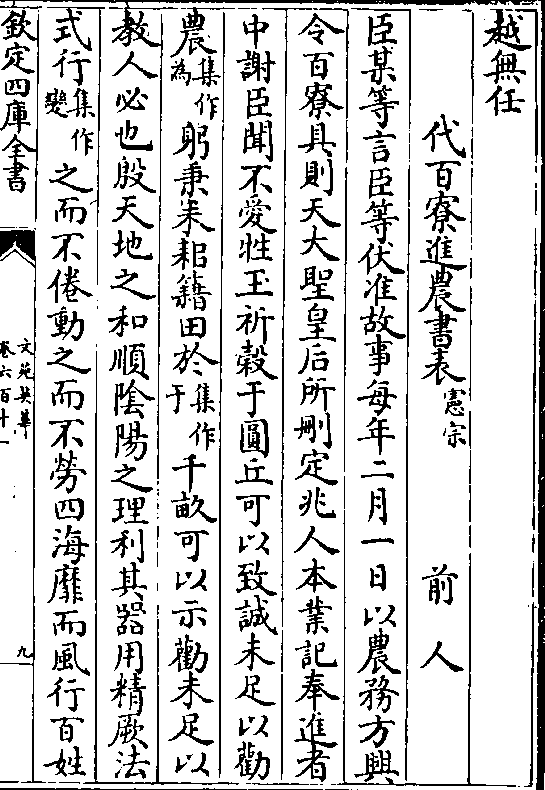 越無任
代百寮進農書表憲宗 前人
臣某等言臣等伏准故事每年二月一日以農務方興
令百寮具則天大聖皇后所刪定兆人本業記奉進者
中謝臣聞不愛牲玉祈穀于圓丘可以致誠未足以勸
農集作為躬秉耒耜籍田於集作于千畝可以示勸未足以
教人必也殷天地之和順陰陽之理利其器用精厥法
式行集作變之而不倦動之而不勞四海靡而風行百姓
欽定四庫全書
文苑英華
卷六百十一
九